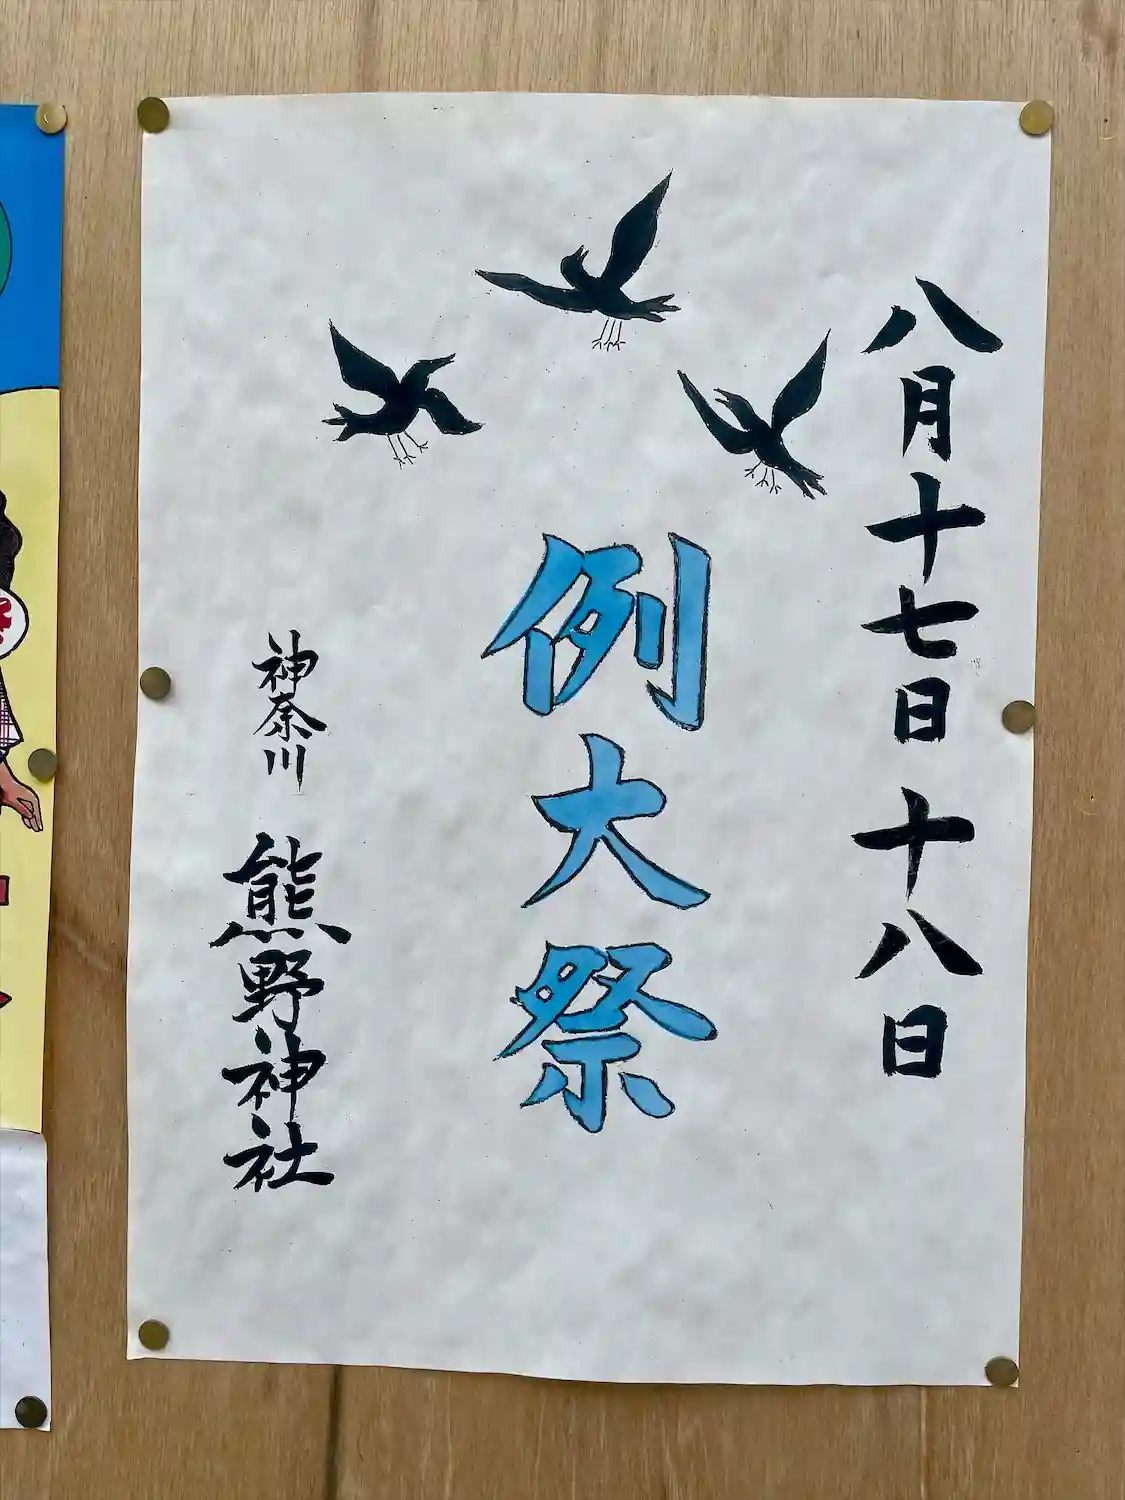 八月十七日 十八日
例大祭
神奈川 熊野神社